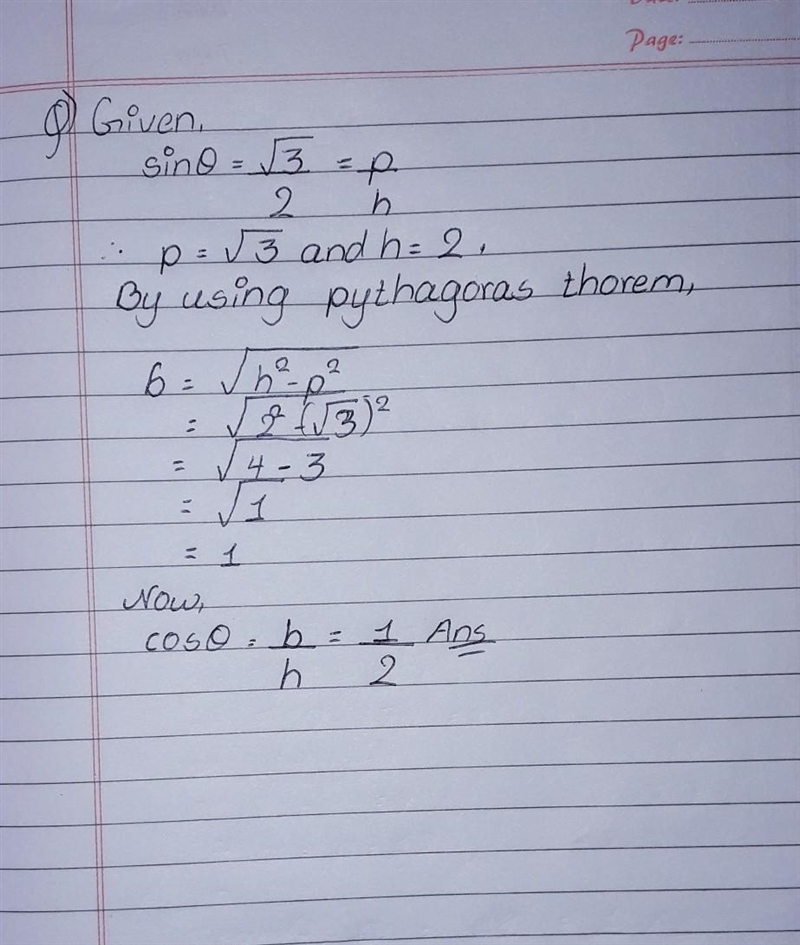 Page:
Q) Given,
sinθ = √3/2 = p/h
∴ p = √3 and h = 2,
By using pythagoras thorem,
b = √h² - p²
= √2² - (√3)²
= √4 - 3
= √1
= 1
Now,
cosθ = b/h = 1/2 Ans